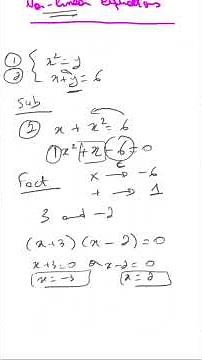 Non-linear equations
① { x² = y
② { x + y = 6
Sub
② x + x² = 6
① x² + x - 6 = 0
Fact x → -6
+ → 1
3 and -2
(x+3) (x-2) = 0
x+3=0 or x-2=0
x=-3 x=2